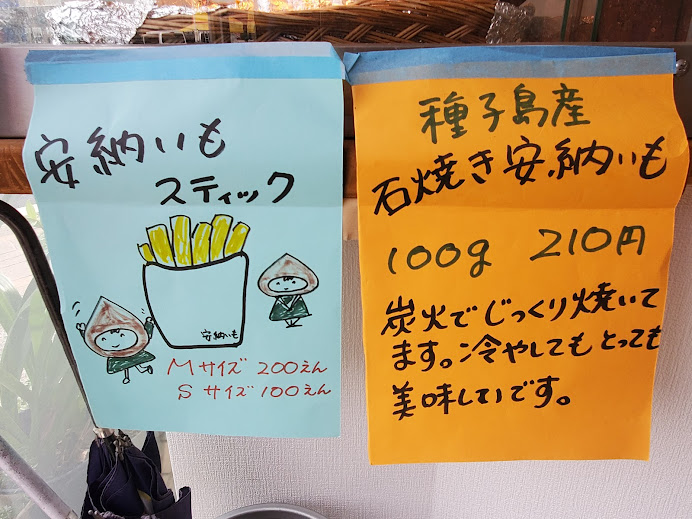 安納いも
スティック
安納いも
Mサイズ 200えん
Sサイズ 100えん
種子島産
石焼き安納いも
100g 210円
炭火でじっくり焼いて
ます。冷やしてもとっても
美味しいです。